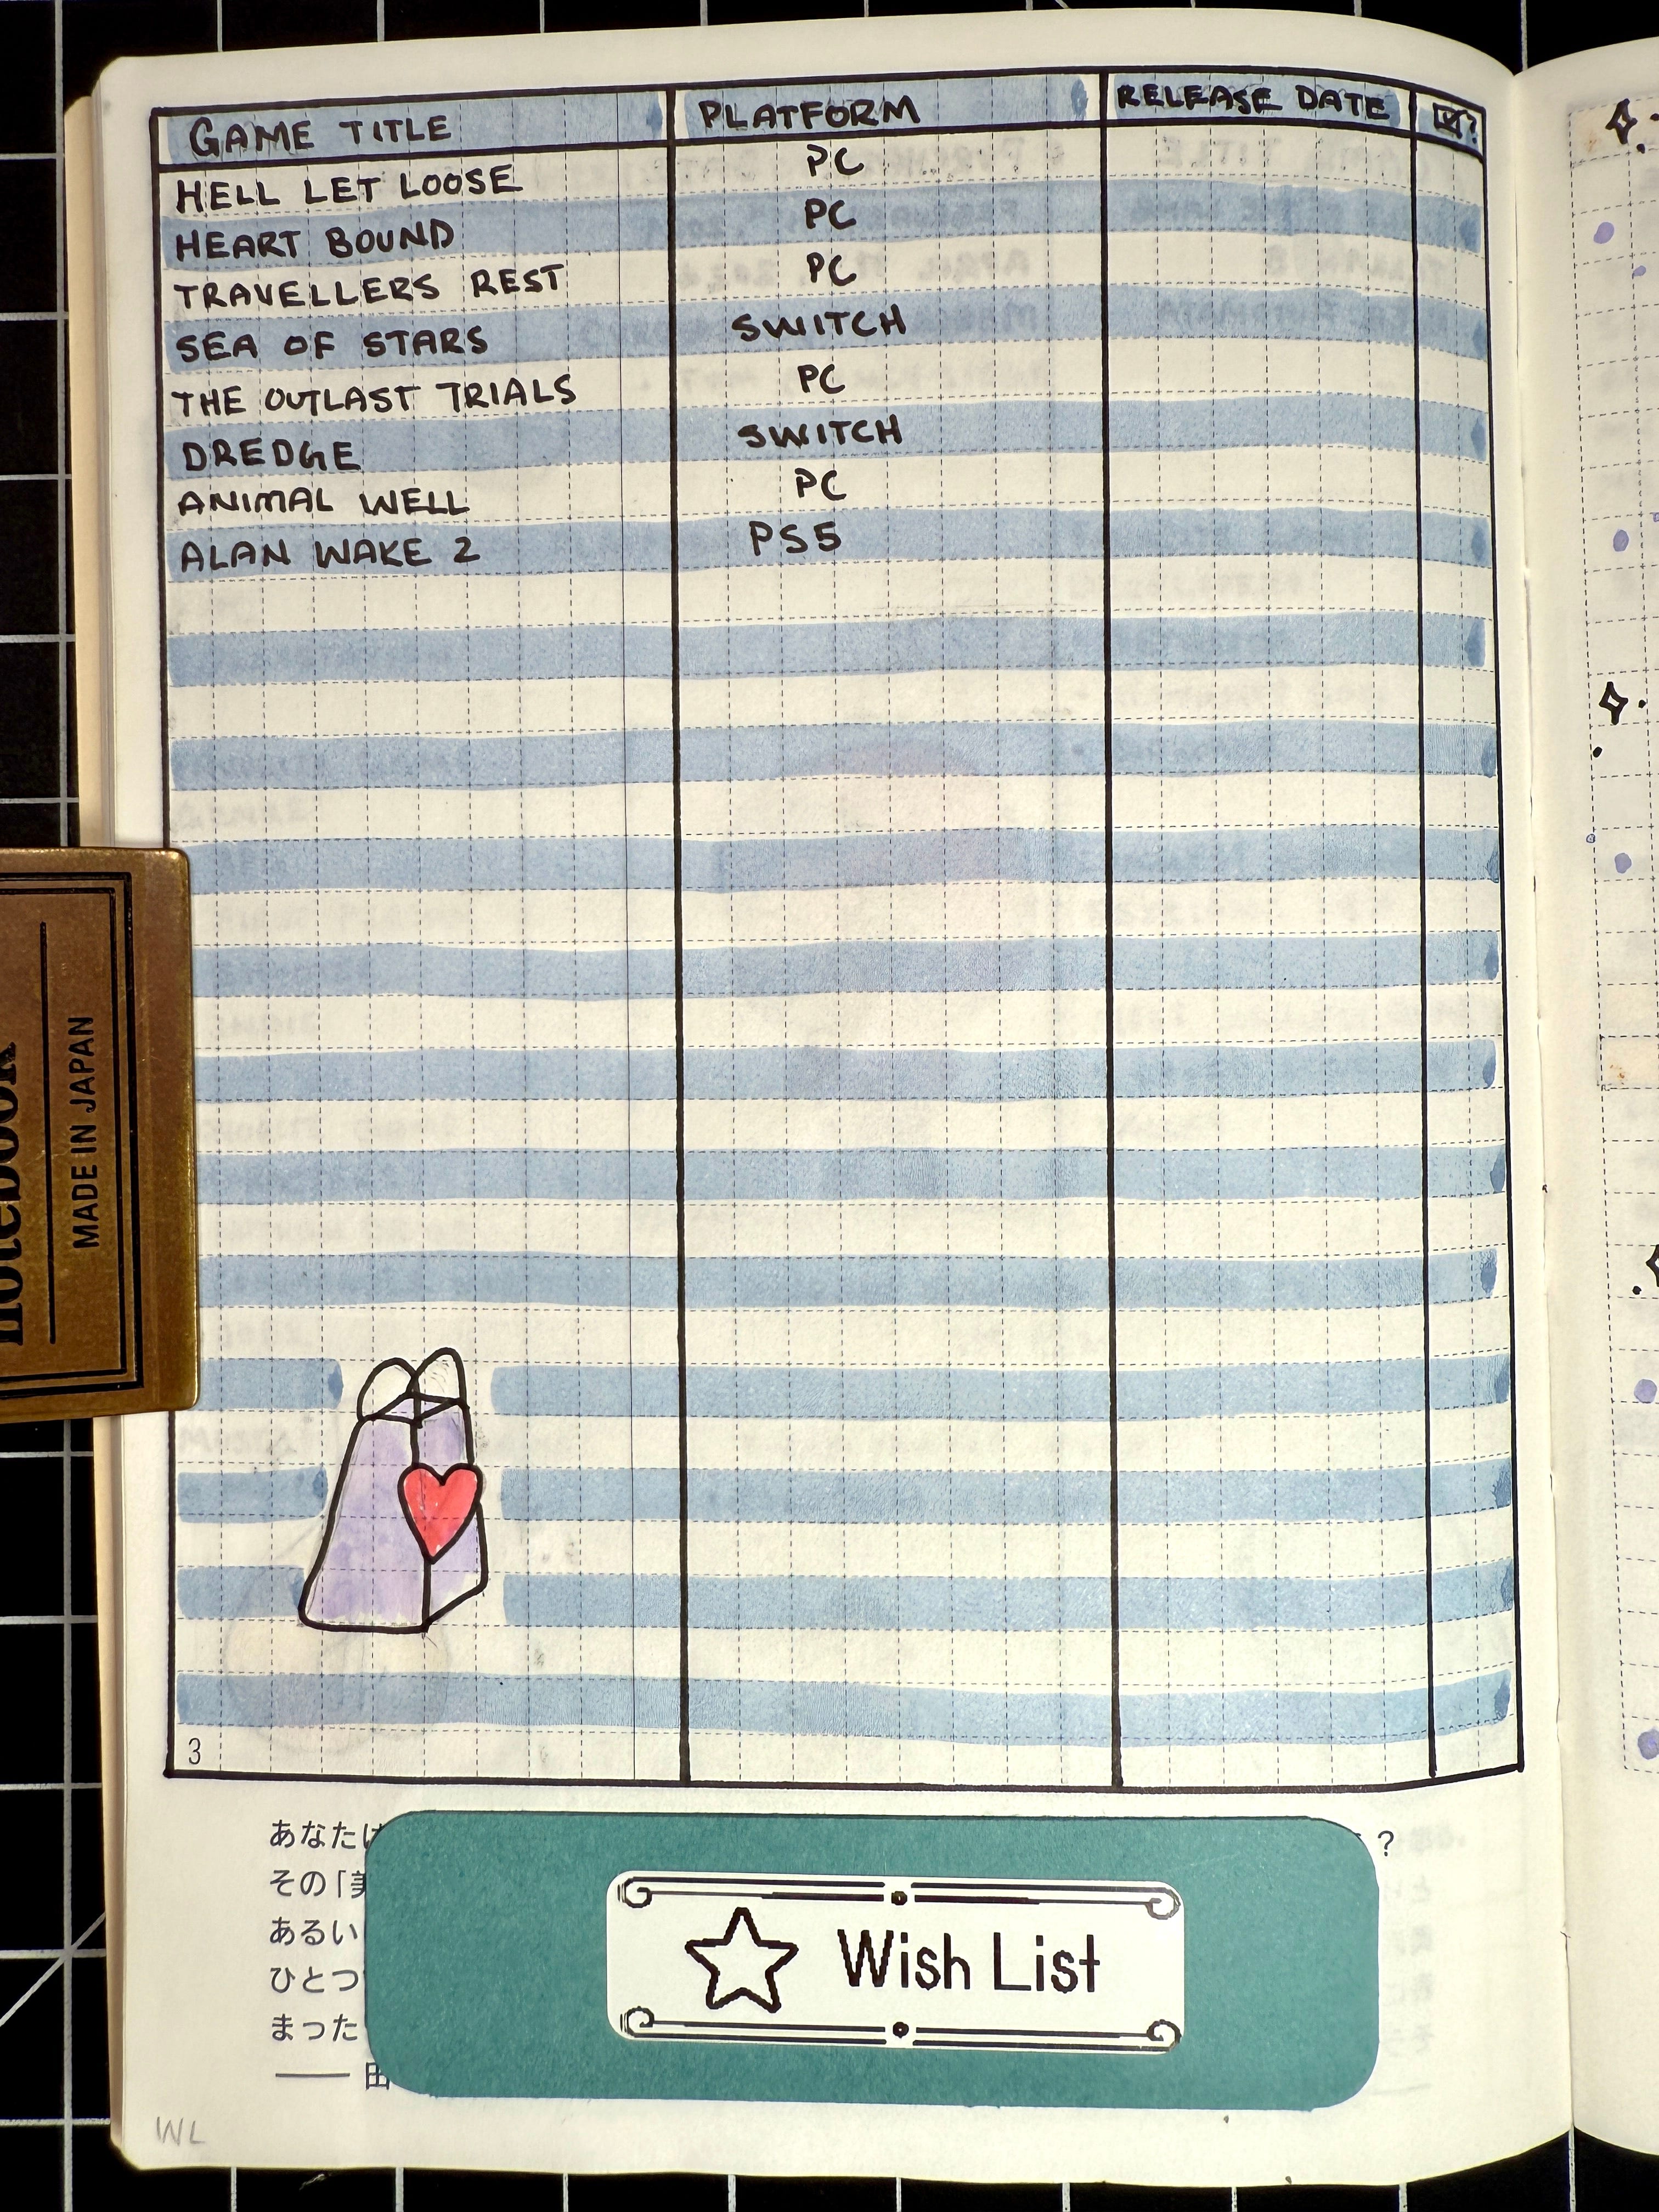 GAME TITLE PLATFORM RELEASE DATE ?
HELL LET LOOSE PC
HEART BOUND PC
TRAVELLERS REST PC
SEA OF STARS SWITCH
THE OUTLAST TRIALS PC
DREDGE SWITCH
ANIMAL WELL PC
ALAN WAKE 2 PS5
notebook
MADE IN JAPAN
3
あなたは ?
その「美
あるい
ひとつ
まった
—— 田
Wish List
WL